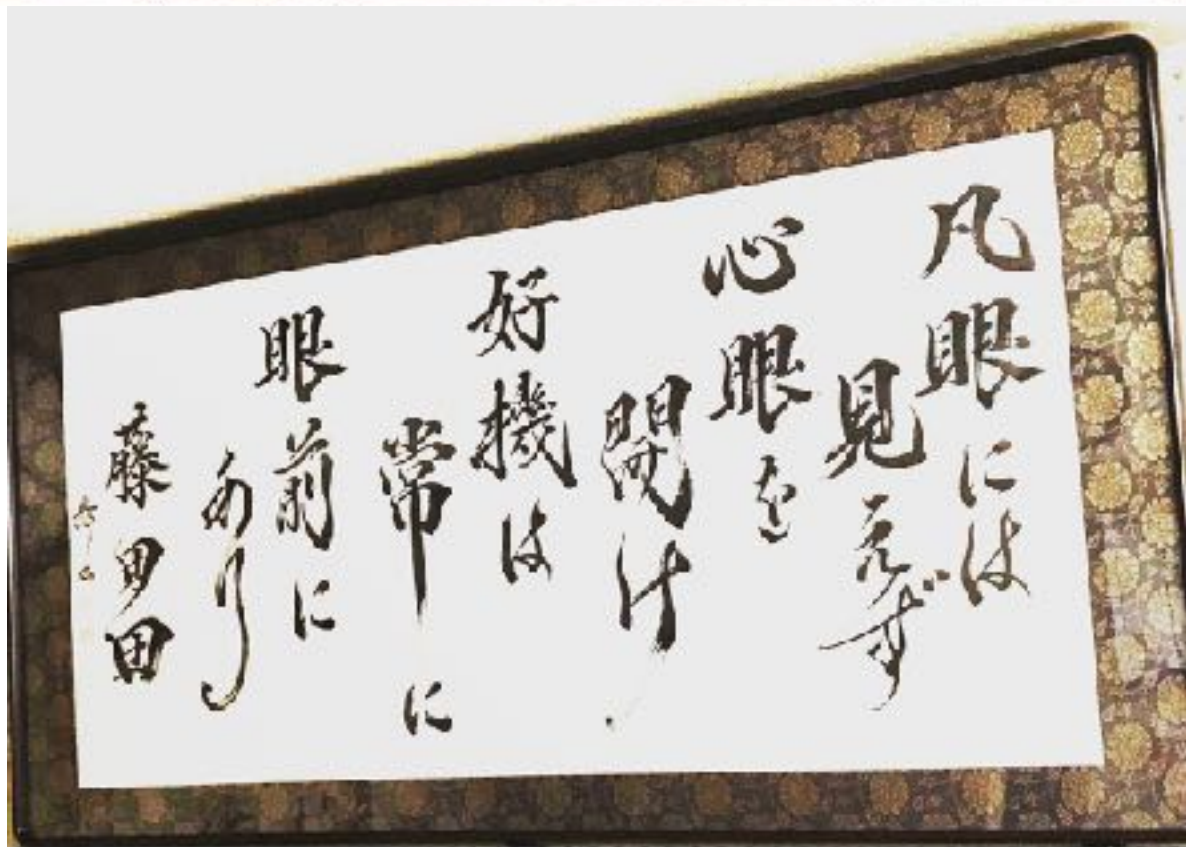 凡眼には
見えず
心眼を
開け
好機は
常に
眼前に
あり
藤田田